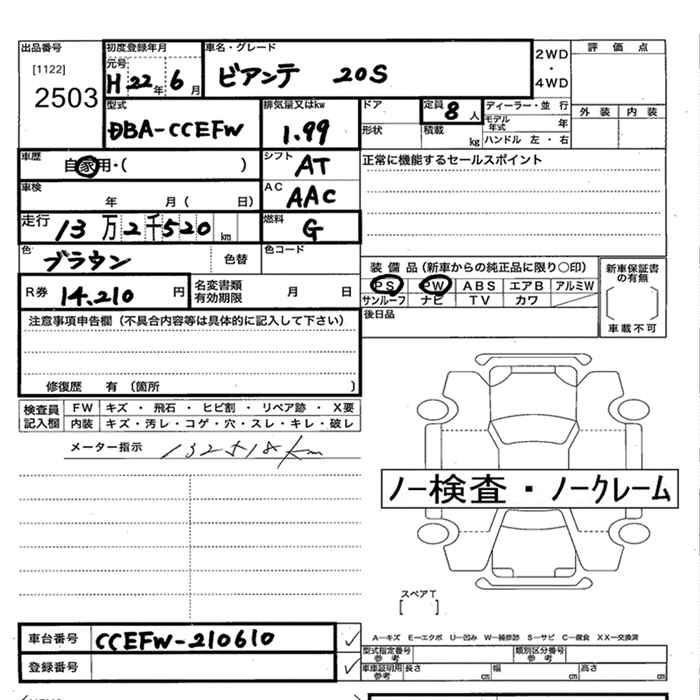 出品番号 初度登録年月 車名・グレード 2WD 評価点
[1122] 元号 ・
2503 H 22年 6月 ビアンテ 20S 4WD
型式 排気量又はkw ドア 定員 8人 ディーラー・並 行 外装 内装
DBA-CCEFW 1.99 形状 積載 kg モデル年式 年
ハンドル 左・右
車歴 自家用・( ) シフト AT 正常に機能するセールスポイント
車検 年 月( 日) AC AAC
走行 13万2千520km 燃料 G
色 ブラウン 色替 色コード
装備品(新車からの純正品に限り〇印) 新車保証書の有無
R券 14,210 円 名変書類有効期限 月 日 PS PW ABS エアB アルミW
サンルーフ ナビ TV カワ
注意事項申告欄(不具合内容等は具体的に記入して下さい) 後日品 車載不可
修復歴 有(箇所 )
検査員 FW キズ・飛石・ヒビ割・リペア跡・X要
記入欄 内装 キズ・汚レ・コゲ・穴・スレ・キレ・破レ
メーター指示 132518km
ノー検査・ノークレーム
スペアT
[ ]
車台番号 CCEFW-210610 ✓ A―キズ E―エクボ U―凹み W―補修跡 S―サビ C―腐食 XX―交換済
型式指定番号 参考 類別区分番号 参考
登録番号 ✓ 車車証明用 参考 長さ cm 幅 cm 高さ cm